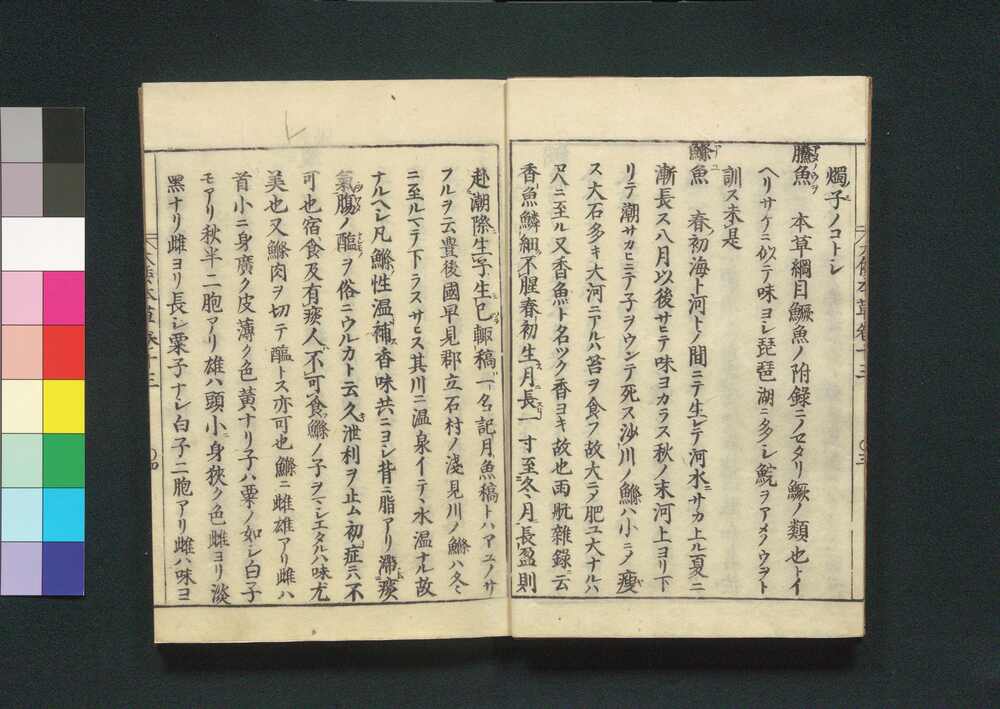 燭子ノコトシ
鰧魚 本草綱目鱖魚ノ附錄ニノセタリ鱖ノ類也トイ
ヘリサケニ似テ味ヨシ琵琶湖ニ多シ鯇ヲアメノウヲト
訓ス未是
鰷魚 春初海ト河トノ間ニテ生レテ河水ニサカ上ル夏ニ
漸長ス八月以後サヒテ味ヨカラス秋ノ末河上ヨリ下
リテ潮サカヒニテ子ヲウンテ死ス沙川ノ鰷ハ小ニノ瘦
ス大石多キ大河ニアルハ苔ヲ食フ故大ニヲ肥ユ大ナルハ
尺ニ至ル又香魚ト名ツク香ヨキ故也雨航雜錄云
香魚鱗細不腥春初生月長一寸至冬月長盈則
赴潮際生子生已輙稿一名記月魚稿トハアユノサ
フルヲ云豊後國早見郡立石村ノ淺見川ノ鰷ハ冬
ニ至ルマテ下ラスサヒス其川ニ温泉イテヽ水温ナル故
ナルヘシ凡鰷性温補香味共ニヨシ背ニ脂アリ滯痰
氣腸ノ醢ヲ俗ニウルカト云久泄利ヲ止ム初症ニハ不
可也宿食及有痰人不可食鰷ノ子ヲヽシエタルハ味尤
美也又鰷肉ヲ切テ醢トス亦可也鰷ニ雌雄アリ雌ハ
首小ニ身廣ク皮薄ク色黄ナリ子ハ粟ノ如シ白子
モアリ秋半二胞アリ雄ハ頭小身狹ク色雌ヨリ淡
黑ナリ雌ヨリ長シ粟子ナシ白子二胞アリ雌ハ味ヨ